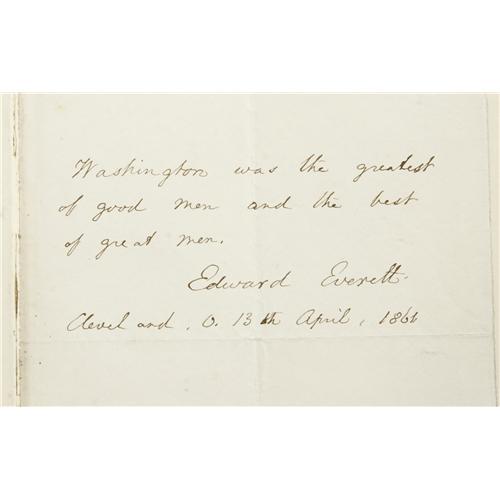 Washington was the greatest
of good men and the best
of great men.
Edward Everett.
Cleveland, O. 13th April, 1861